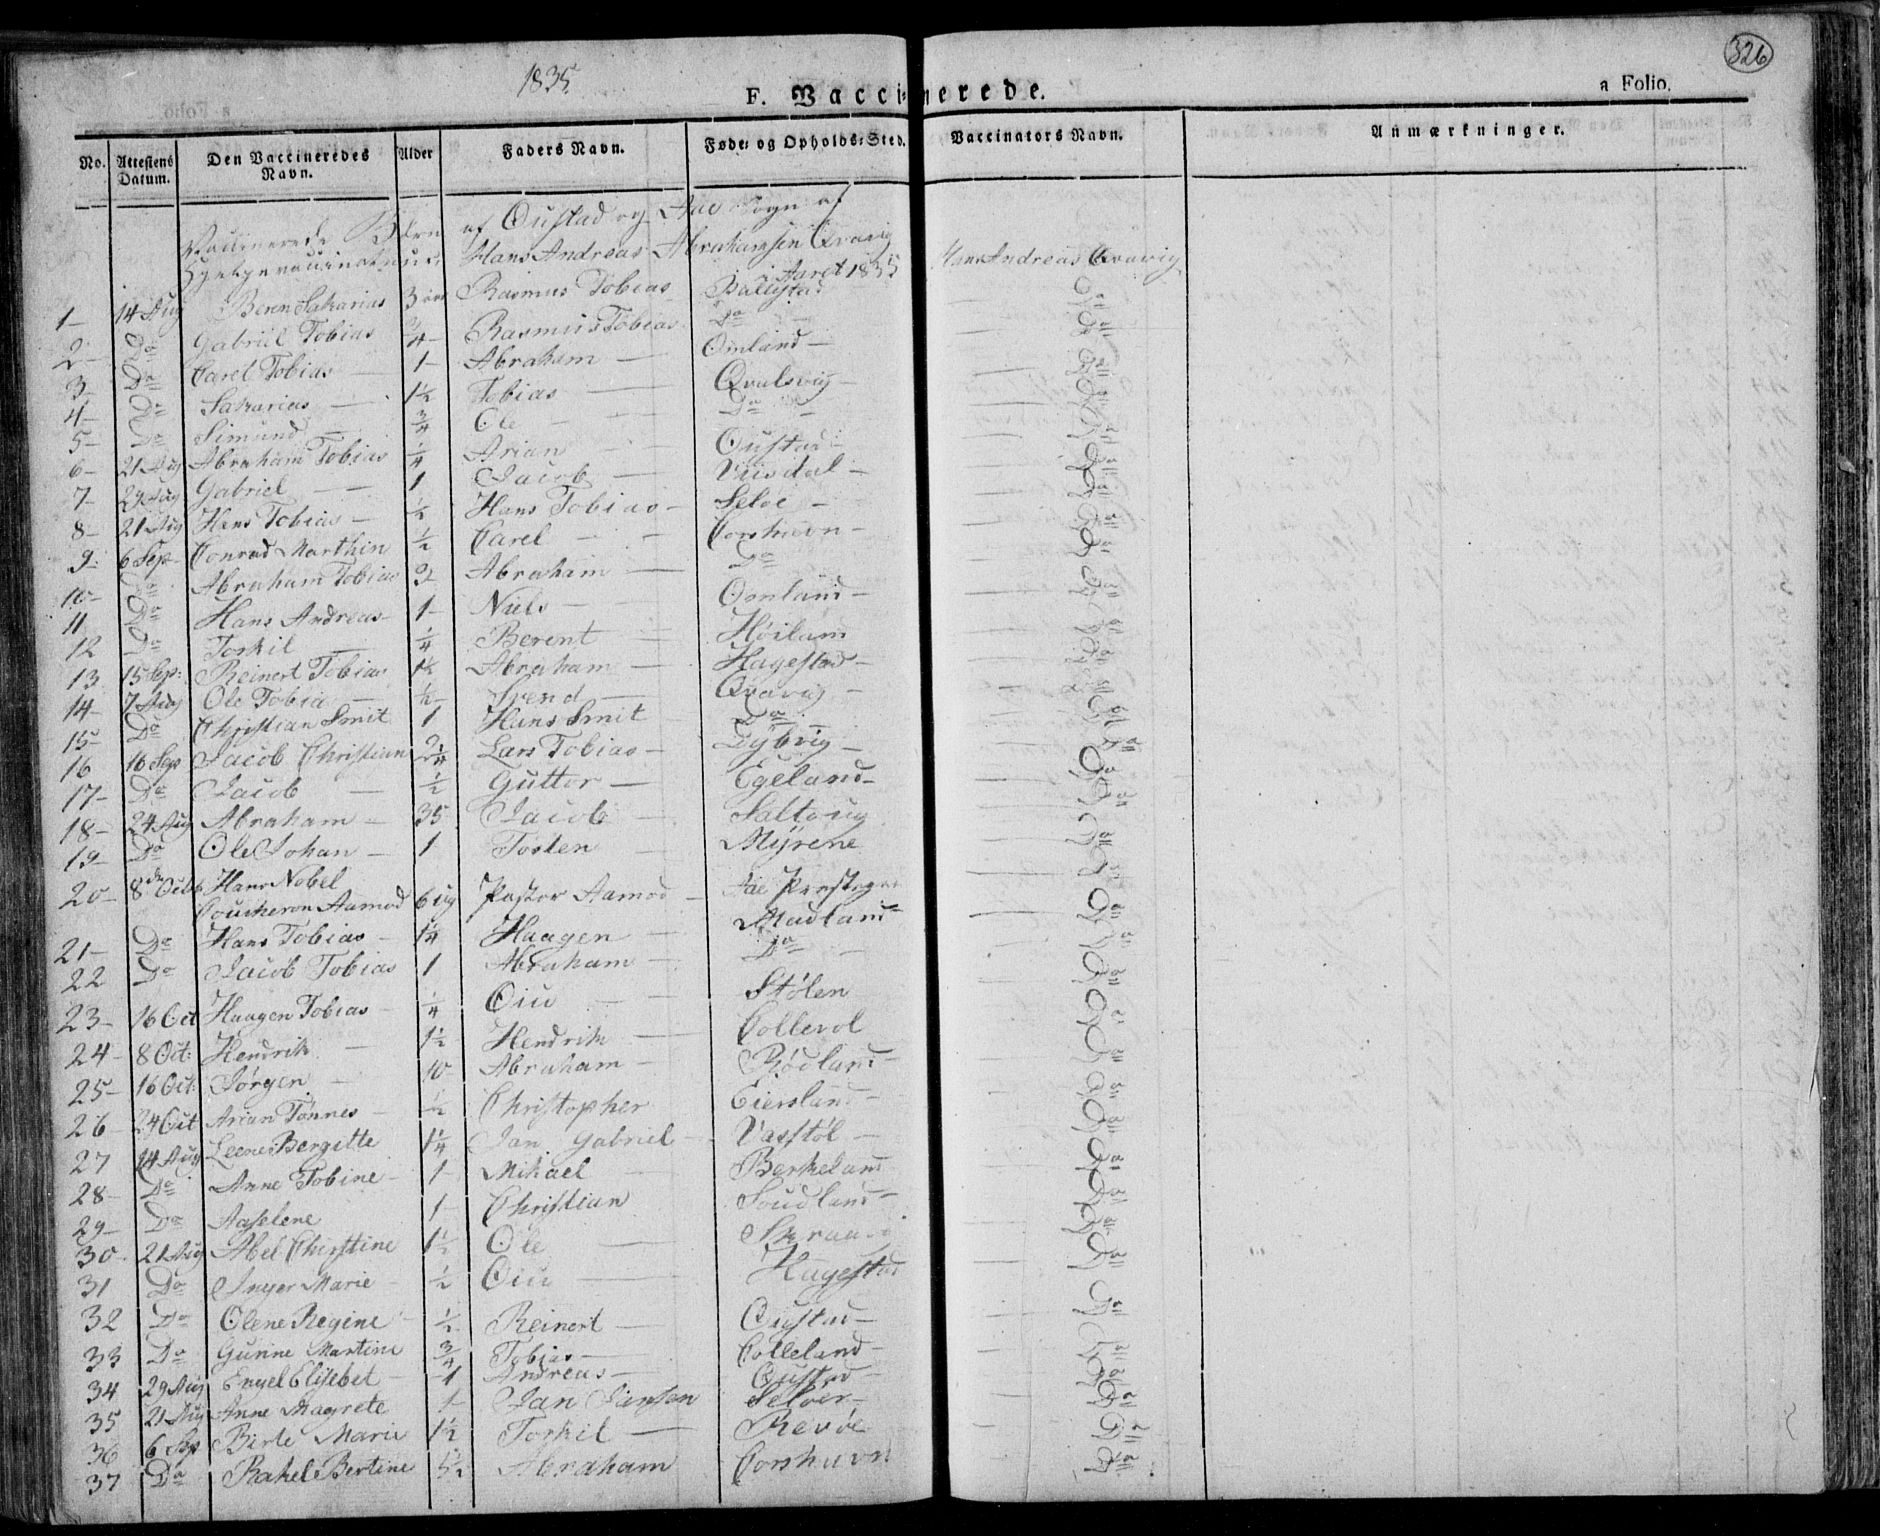 1835
326
F. Vaccinerede.
a Folio.
No. Attestens Datum. Den Vaccineredes Navn. Alder Faders Navn. Føde- og Opholds-Sted. Vaccinators Navn. Anmærkninger.
Vaccinerede Børn af Oustad og Aae Sogn af
Hans Andreas Abrahamsen Qvavig
Aaret 1835
Hans Andreas Qvavig
1- 14 Aug Beren Sakarias 3 Rasmus Tobias
2- Do Gabriel Tobias Rasmus Tobias Do Do
3- Do Carel Tobias 1- Abraham Omland Do
4- Do Sakarias 1½ Tobias Qvalsvig Do
5- Do Simund ¾ Ole Do Do
6- 21 Aug Abraham Tobias ¼ Arian Oustad Do
7- 29 Aug Gabriel 1 Jacob Viisdal Do
8- 21 Aug Hans Tobias ½ Hans Tobias Seloe Do
9- 6 Sep Conrad Marthin ½ Carel Corshavn Do
10- Do Abraham Tobias Abraham Do Do
11 Do Hans Andreas 1- Niels Omland Do
12 Do Torkil ¼ Berent Høiland Do
13 15 Sep: Reinert Tobias Abraham Hagestad Do
14- 7 Aug Ole Tobia ½ Svend Qvavig Do
15- Do Christian Smit 1 Hans Smit Do Do
16 16 Sep Jacob Christian Lars Tobias Do
17- Do Jacob ½ Guttor Egeland Do
18- 24 Aug Abraham 35 Jacob Do
19- Do Ole Johan 1 Tosten Mÿrene Do
20- 8de Octb Hans Nobel
Coucheron Aamod 6 ug Pastor Aamod Aae Do
21- Do Hans Tobias 1¼ Haagen Madland Do
22 Do Jacob Tobias 1 Abraham Do Do
23- 16 Oct Haagen Tobias ¼ Stølen Do
24- 8 Oct: Hendrik 1½ Hendrik Collevol Do
25- 16 Oct: Jørgen 10 Abraham Rødland Do
26- 24 Oct Arian Tønnes ½ Christopher Eiersland Do
27 14 Aug Leene Bergitte 1¼ Jan Gabriel Vasstøl Do
28- Do Anne Tobine 1 Mihael Berkeland Do
29- Do Aaselene 1- Christian Soudland Do
30- 21 Aug Abel Christine 1½ Ole Do
31 Do Inger Marie ½ Hagestad Do
32 Do Olene Regine ½ Reinert Oustad Do
33 Do Gunne Martine ¾ Tobias Colleland Do
34 29 Aug Engel Elisebet 1 Andreas Oustad Do
35 21 Aug Anne Magrete 1 Jan Jansen Seloer Do
36 6 Sep Birte Marie 1½ Torkil Revøe Do
37 Do Rakel Bertine 5½ Abraham Corshavn Do